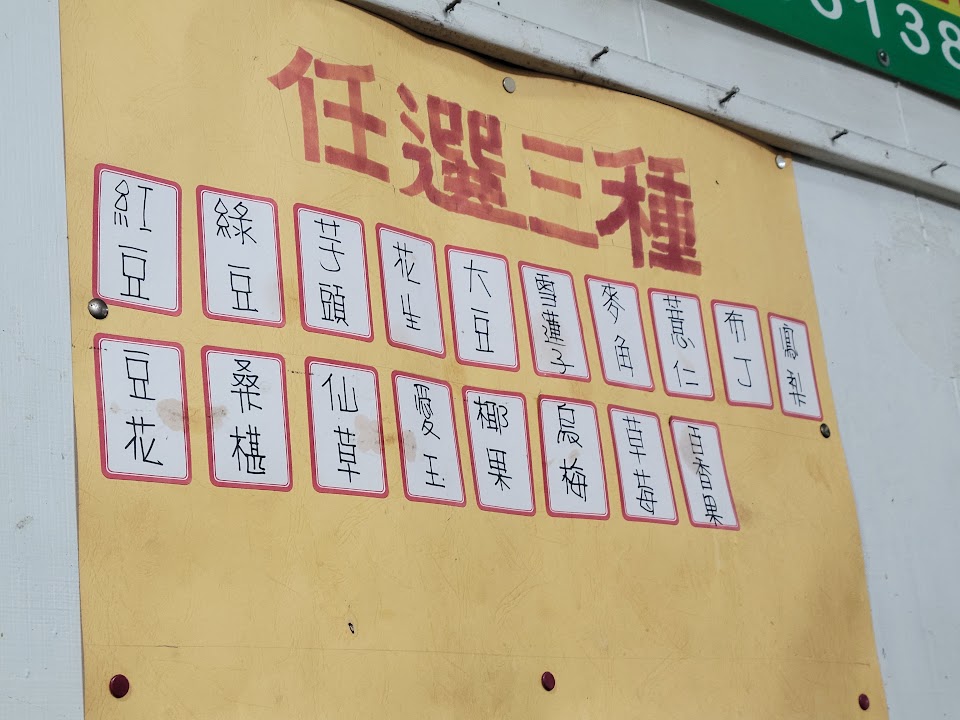 任選三種
紅豆 綠豆 芋頭 花生 大豆 雪蓮子 麥角 薏仁 布丁 鳳梨
豆花 桑椹 仙草 愛玉 椰果 烏梅 草莓 百香果